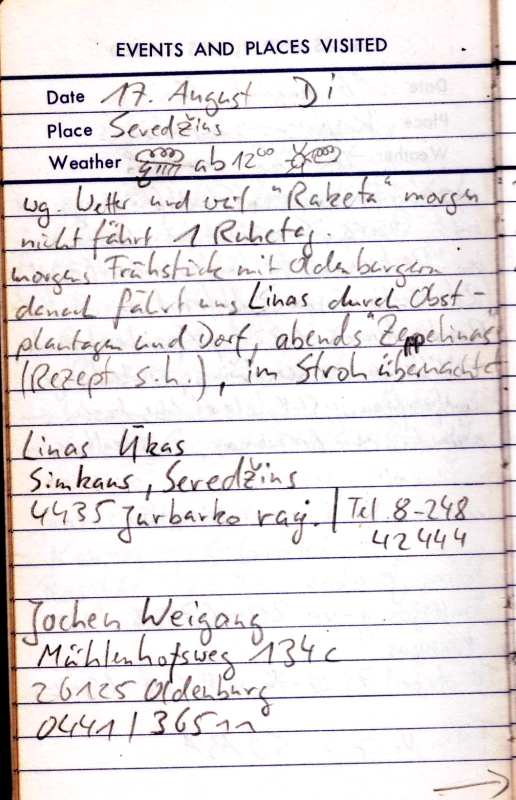 EVENTS AND PLACES VISITED
Date 17. August Di
Place Seredžius
Weather ab 12⁰⁰
wg. Wetter und weil "Raketa" morgen
nicht fährt 1 Ruhetag.
morgens Frühstück mit Oldenburgern
danach fährt uns Linas durch Obst-
plantagen und Dorf, abends "Zeppelinas"
(Rezept s.h.), im Stroh übernachtet
Linas Ūkas
Simkaus, Seredžius
4435 Jurbarko raj. | Tel 8-248
42444
Jochen Weigang
Mühlenhofsweg 134c
26125 Oldenburg
0441 / 36511